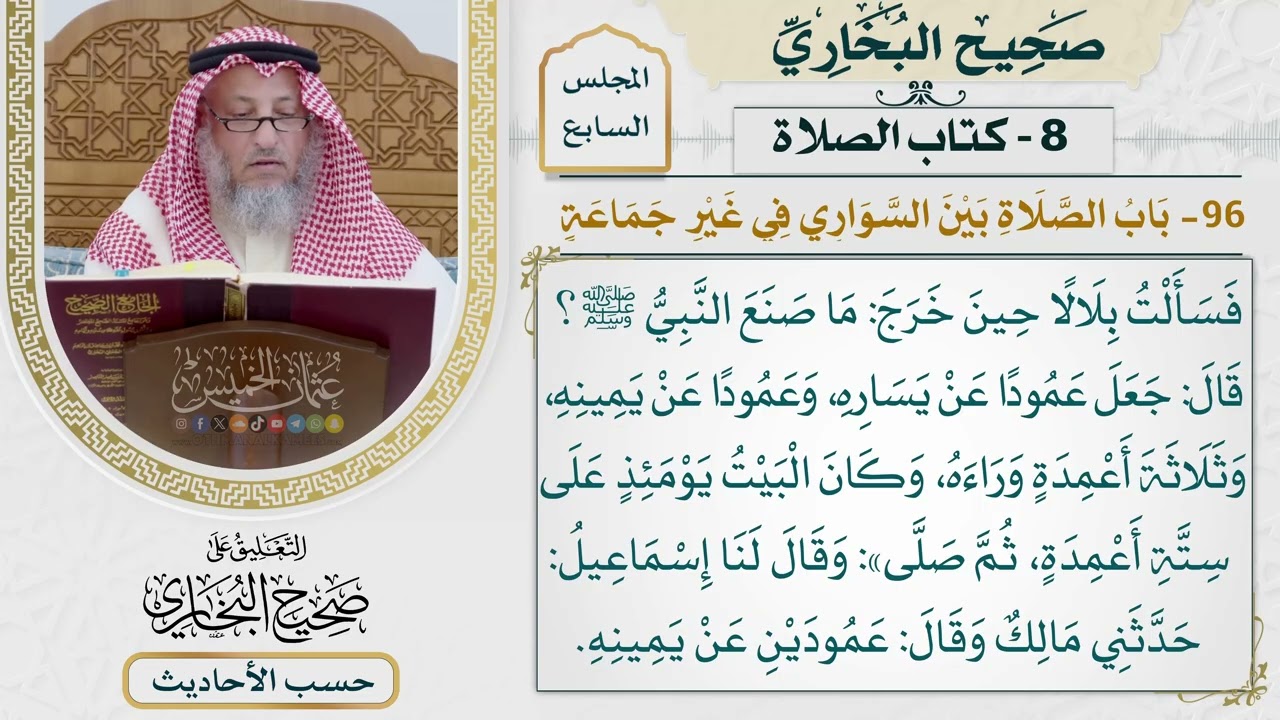 صَحِيح البُخَارِيِّ
المجلس
السابع
8 - كتاب الصلاة
96- بَابُ الصَّلَاةِ بَيْنَ السَّوَارِي فِي غَيْرِ جَمَاعَةٍ
فَسَأَلْتُ بِلَالًا حِينَ خَرَجَ: مَا صَنَعَ النَّبِيُّ ﷺ ؟
قَالَ: جَعَلَ عَمُودًا عَنْ يَسَارِهِ، وَعَمُودًا عَنْ يَمِينِهِ،
وَثَلَاثَةَ أَعْمِدَةٍ وَرَاءَهُ، وَكَانَ الْبَيْتُ يَوْمَئِذٍ عَلَى
سِتَّةِ أَعْمِدَةٍ، ثُمَّ صَلَّى»: وَقَالَ لَنَا إِسْمَاعِيلُ:
حَدَّثَنِي مَالِكٌ وَقَالَ: عَمُودَيْنِ عَنْ يَمِينِهِ.
الجامع الصحيح
عثمان الخميس
التَّعْلِيقُ عَلَى
صَحِيح البُخَارِي
حسب الأحاديث